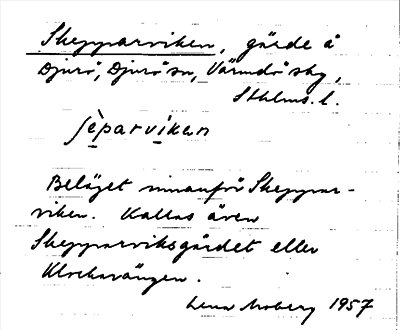 Skepparviken, gärde å
Djurö, Djurö sn, Värmdö sky,
Sthlms. l.
ʃèparvikan
Beläget innanför Skeppar-
viken. Kallas även
Skepparviksgärdet eller
Klockarängen.
Lena Moberg 1957